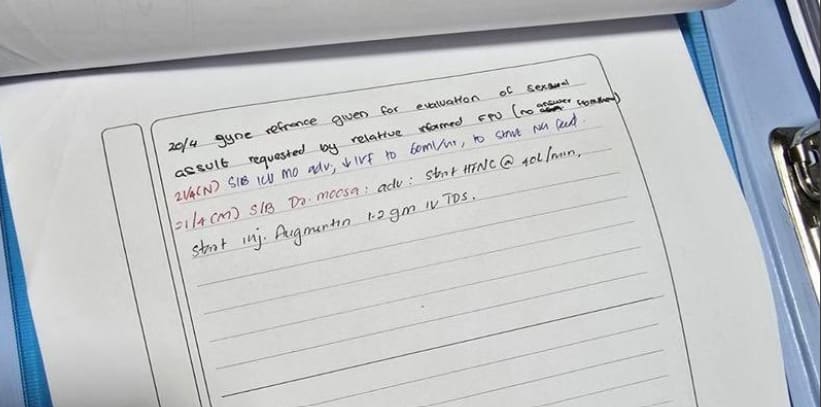 20/4 gyne refrence given for evaluation of sexual
assult requested by relative informed FPU (no answer
21/4(N) S/B ICU MO adv, ↓IVF to 60ml/hr, to start NG feed.
21/4(M) S/B Dr. moosa: adv: start HFNC @ 40L/min,
start inj. Augmentin 1.2gm IV TDS.